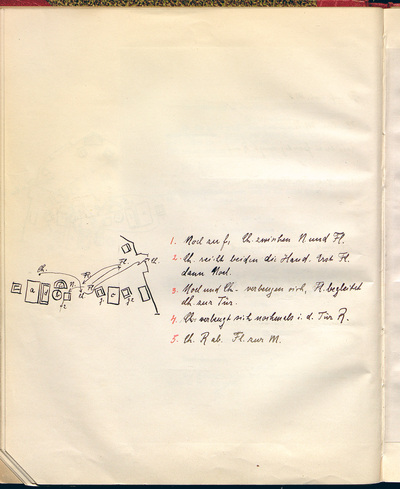 1. Noel auf, Ch. zwischen N und Fl.
2. Ch reicht beiden die Hand. Erst Fl.
dann Noel.
3. Noel und Ch. verbeugen sich, R. begleitet
Ch. zur Tür.
4. Ch verbeugt sich nochmals i. d. Tür R.
5. Ch. R ab. Fl. zur M.